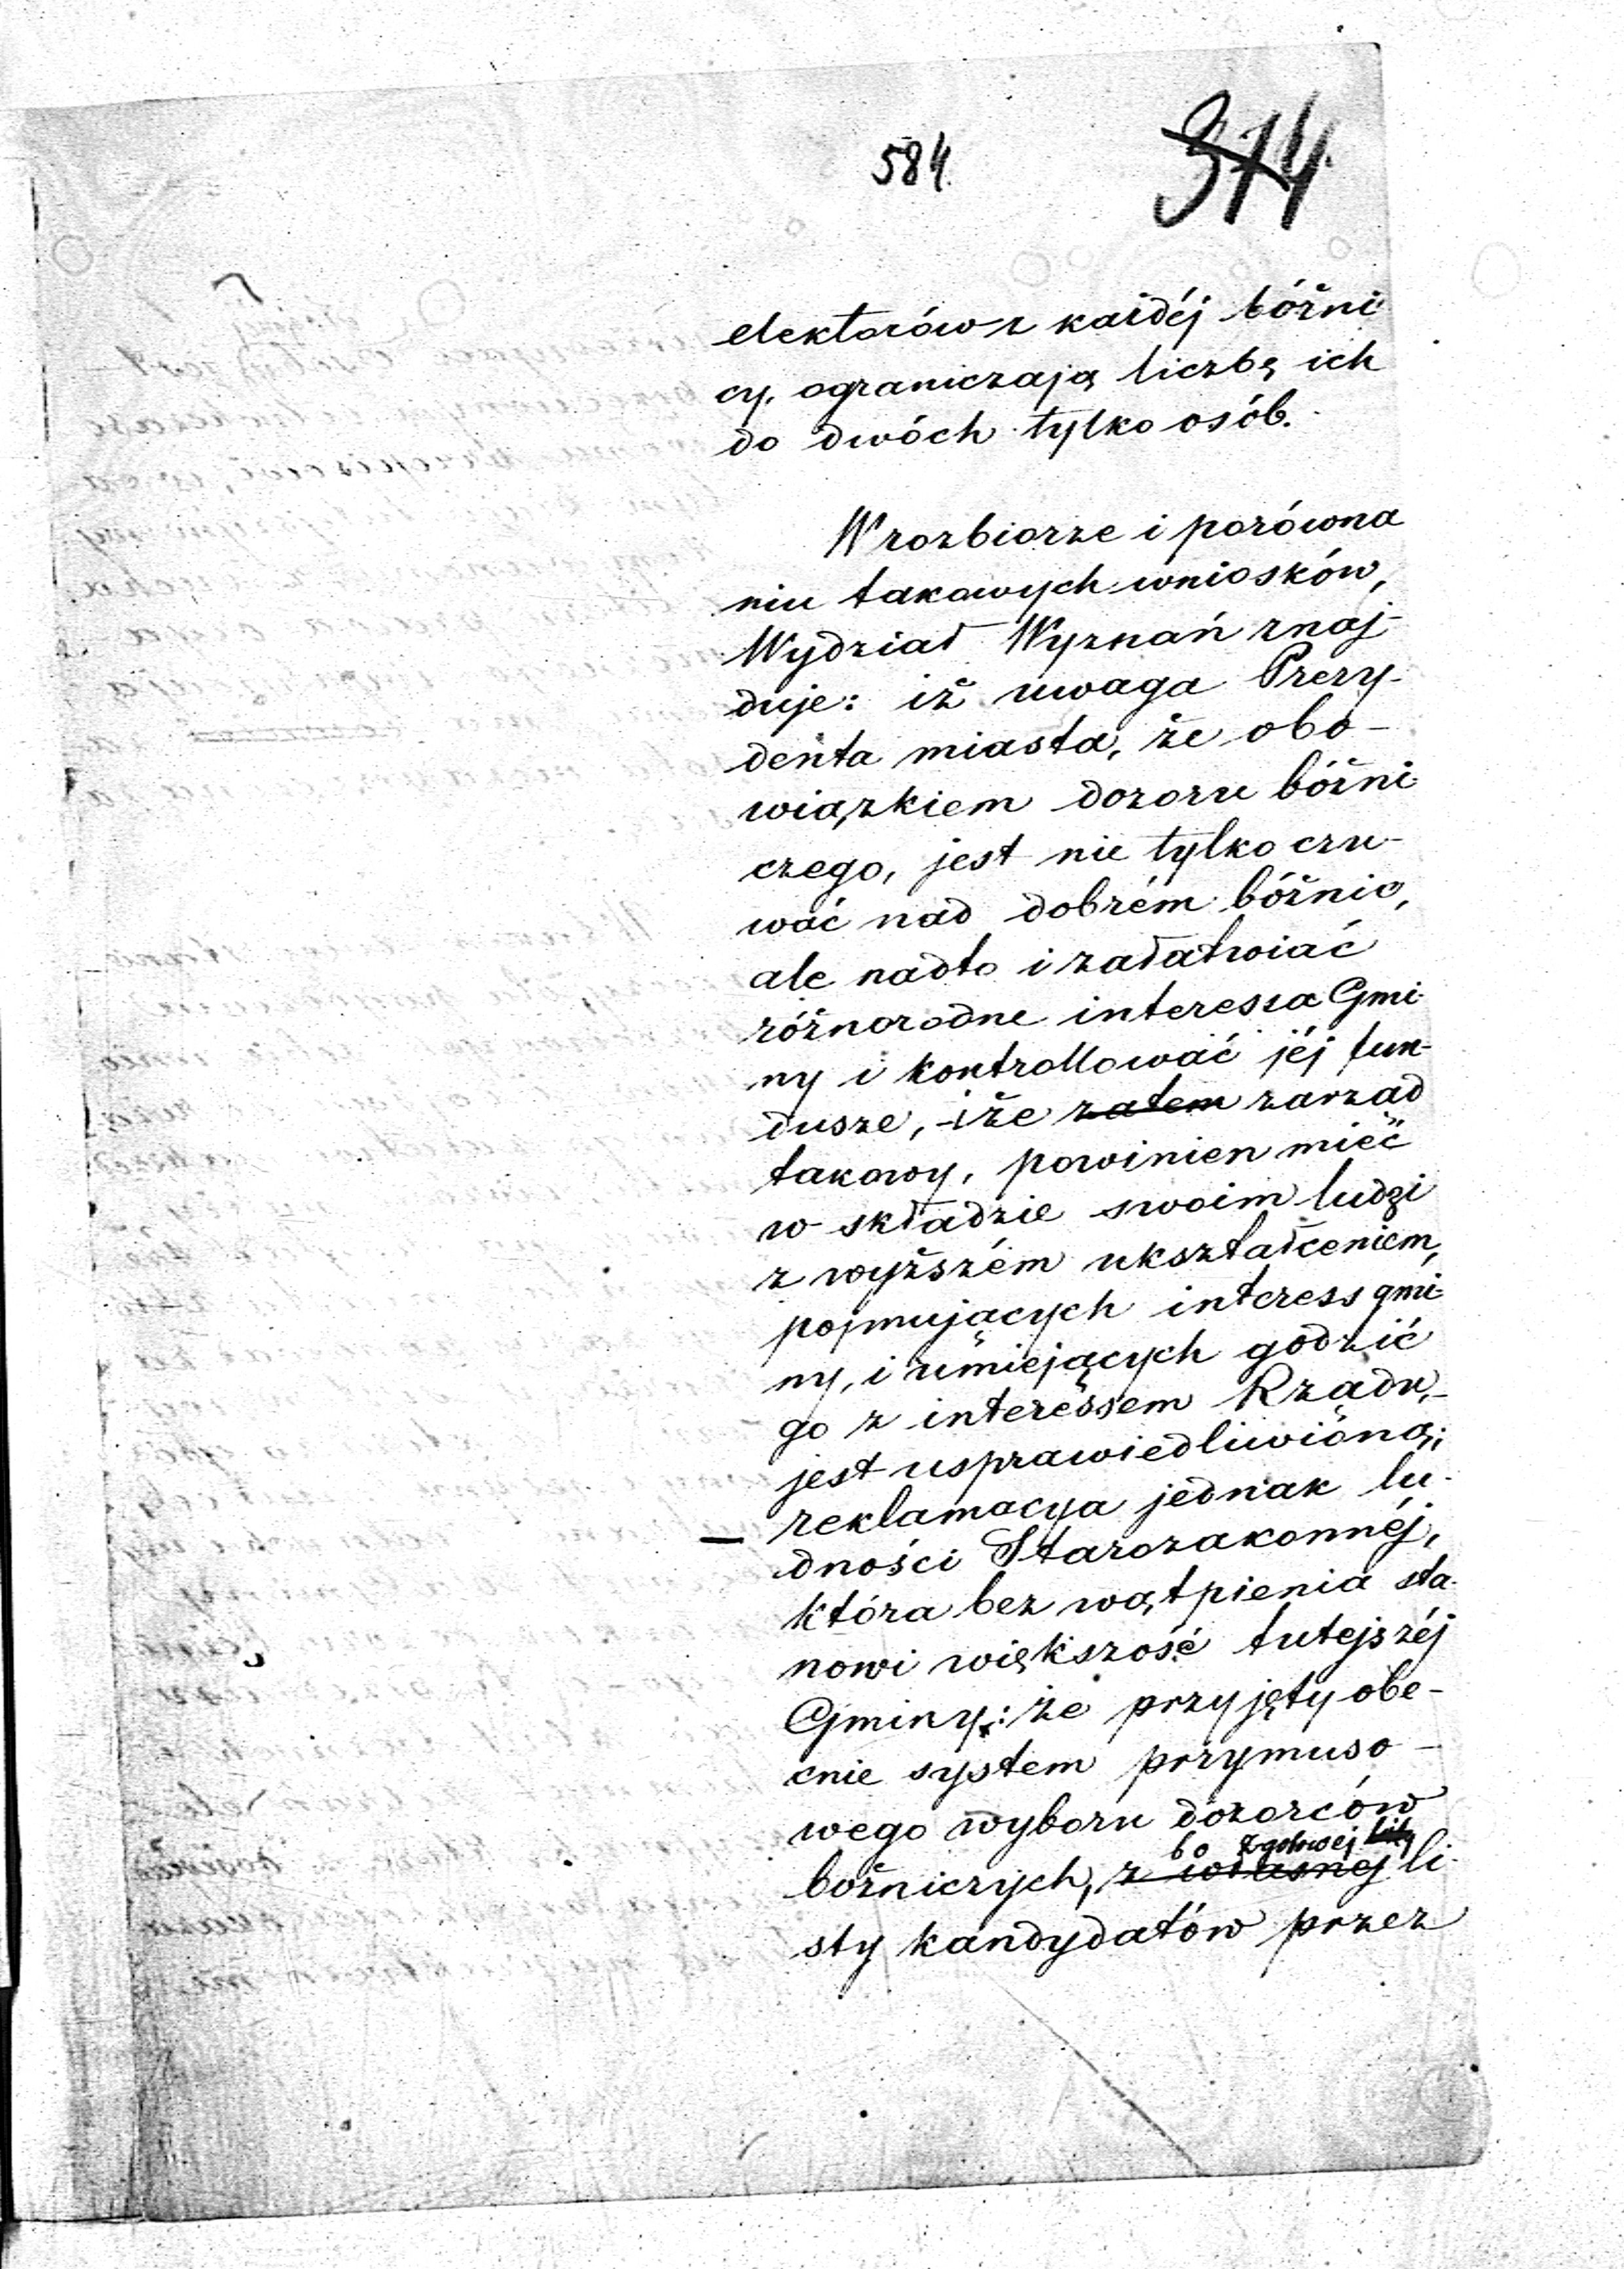 584.
374.
elektorów z każdéj bóżni-
cy, ograniczają liczbę ich
do dwóch tylko osób.
W rozbiorze i porówna
niu takowych wniosków,
Wydział Wyznań znaj-
duje: iż uwaga Prezy-
denta miasta, że obo-
wiązkiem dozoru bóżni-
czego, jest nie tylko czu-
wać nad dobrém bóżnic,
ale nadto i załatwiać
różnorodne interessa Gmi-
ny i kontrollować jéj fun-
dusze, i że zatem zarząd
takowy, powinien mieć
w składzie swoim ludzi
z wyższém ukształceniem,
pojmujących interess gmi-
ny, i umiejących godzić
go z interessem Rządu,-
jest usprawiedliwioną;
– reklamacya jednak lu-
dności Starozakonnéj,
która bez wątpienia sta-
nowi większość tutejszéj
Gminy: że przyjęty obe-
cnie system przymuso-
wego wyboru dozorców
bo z gotowej
bożniczych, z własnej li-
sty kandydatów przez